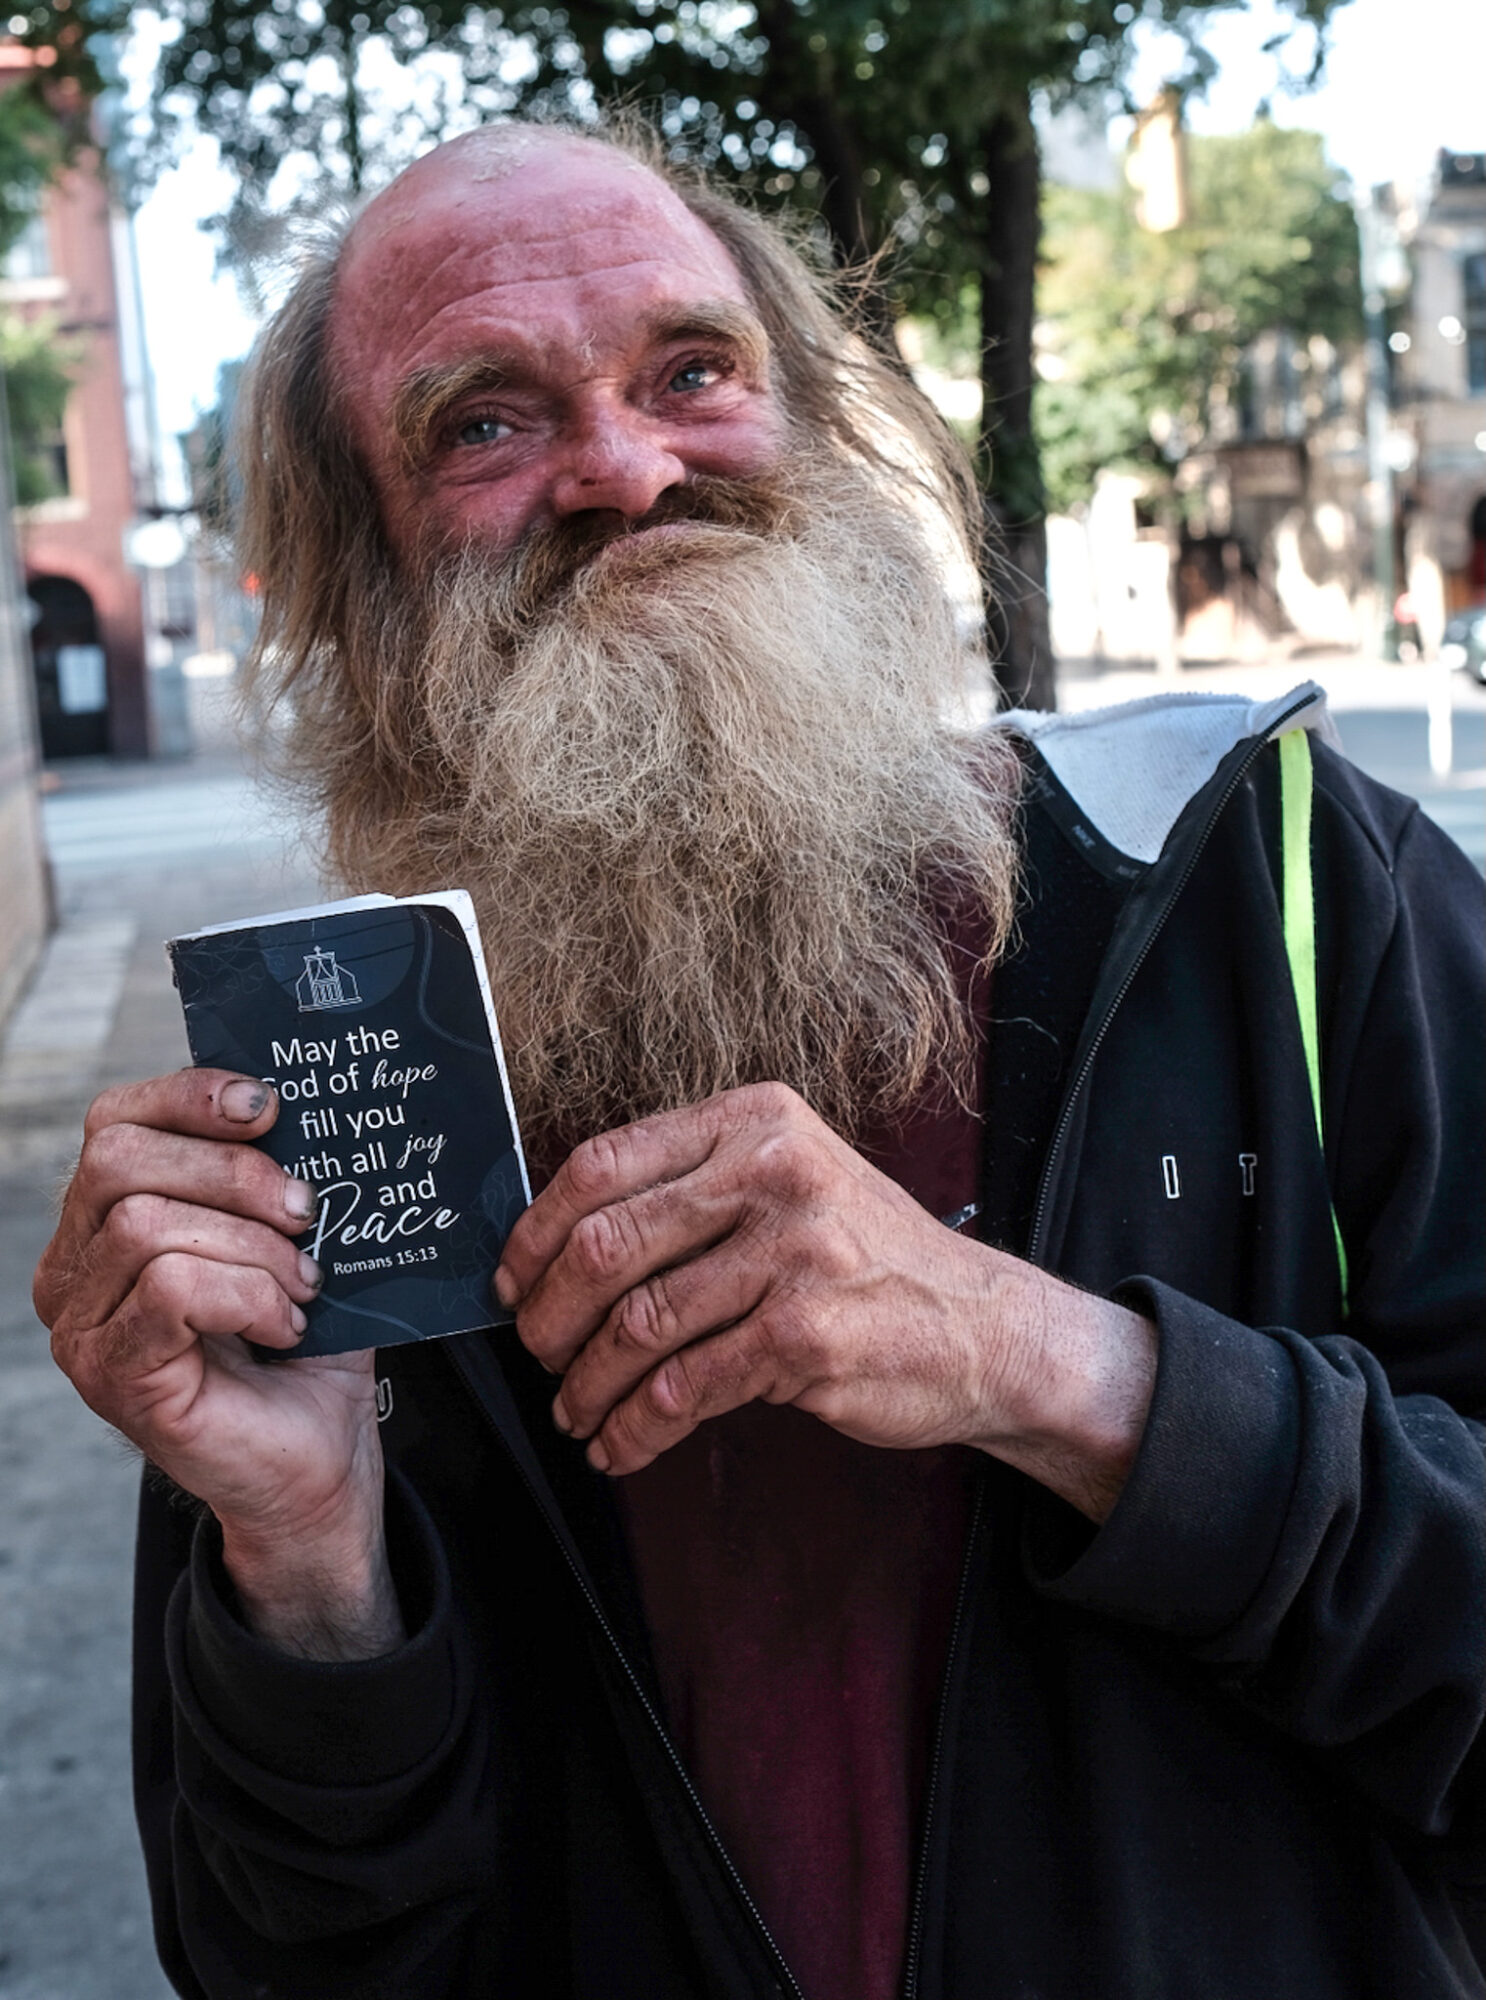 May the
God of hope
fill you
with all joy
and
Peace
Romans 15:13
I T
U